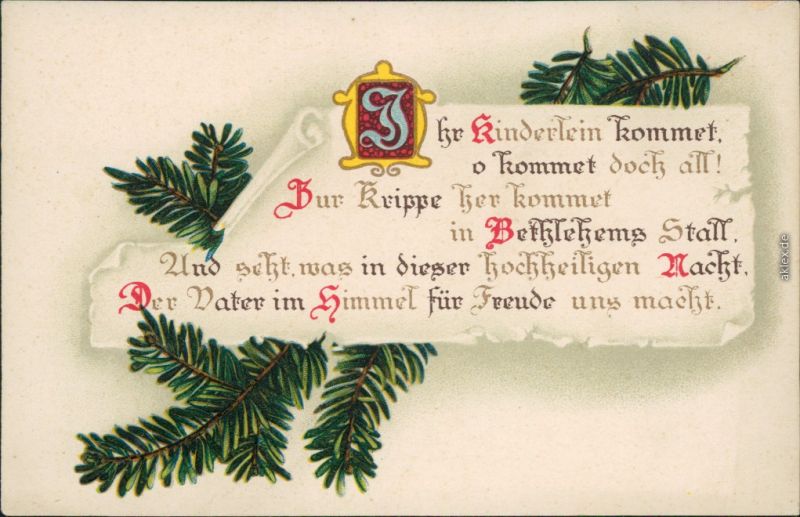 Ihr Kinderlein kommet,
o kommet doch all!
Zur Krippe her kommet
in Bethlehems Stall,
Und seht, was in dieser hochheiligen Nacht,
Der Vater im Himmel für Freude uns macht.
aklex.de